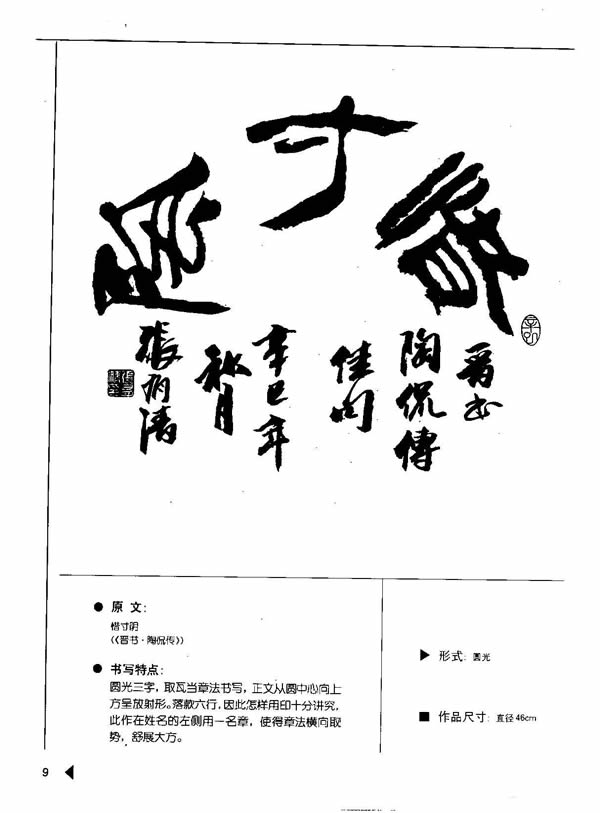 惜寸陰
晉書
陶侃傳
佳句
辛巳年
秋月
張
● 原文:
惜寸阴
(《晋书·陶侃传》)
● 书写特点:
圆光三字，取瓦当章法书写，正文从圆中心向上
方呈放射形。落款六行，因此怎样用印十分讲究，
此作在姓名的左侧用一名章，使得章法横向取
势，舒展大方。
▶ 形式: 圆光
■ 作品尺寸: 直径46cm
9 ◀